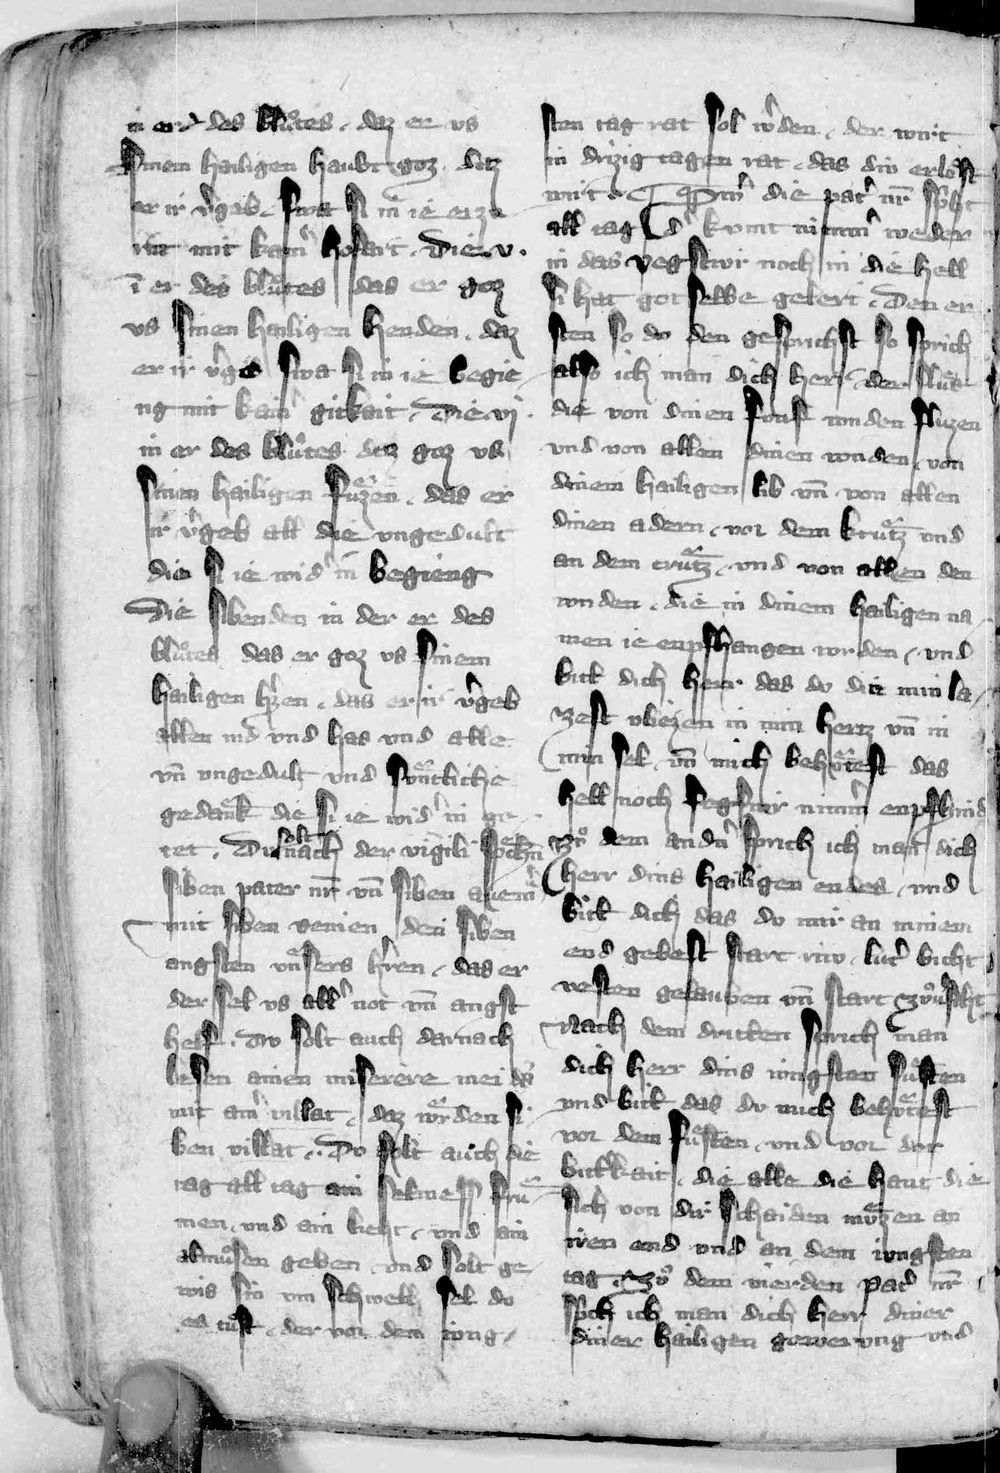 in er des bluͦtes . daz er vs
sinem hailigen haubt goz . ditz
er ir v̓geb . swa si in ie erzu
rnt mit kain̓ hofart . Die . v .
in̄ er des bluͦtes das er goz
vs sinen hailigen henden . daz
er ir v̓geb swa si in ie begie
ng mit kain̓ gitkait . Die vj .
in er des bluͦtes daz goz vs
sinen hailigen fuͤzen . das er
ir v̓geb all die vngedult
die si ie wid̓ in begieng
Die sibenden in der er des
bluͦtes das er goz vs sinem
hailigen h̓zen . das er ir v̓geb
allen nid vnd has vnd alle
vn̄ vngedult vnd súntliche
gedaͤnk die si ie wid̓ in ge
tet . Du solt nach der vigili sp̓chen
siben pater nr̄ vn̄ siben auem̓
mit siben venien den siben
angsten vnsers h̓ren . das er
der sel vs all̓ not vn̄ angst
helf . Du solt auch darnach
lesen ainen miserere mei ds̓
mit ain̓ villat . daz werden si
ben villat . Du solt auch die
tag all tag ain selmess fruͤ
men . vnd ain lieht . vnd ain
almuͦsen geben . vnd solt ge
wis sin vm swelh sel du
es tuͦst . der vor dem iung
sten tag rat sol w̓den . der wirt
in drizig tagen rat . das diu erlóst
wirt . Swer die pat̓ nr̄ sp̓cht
all tag d̓ kvmt nimm̓ weder
in das vegfiwr noch in die hell
si hat got selbe gelert . Den er
sten so du den gesprichst so sprich
also ich man dich herr der fluͤs
die von dinen fvnf wnden fluzen
vnd von allen dinen wnden . von
dinem hailigen lib vn̄ von allen
dinen adern . vor dem krutz vnd
an dem crutz . vnd von allen den
wnden . die in dinem hailigen na
men ie enpfhangen wrden . vnd
bitt dich herr das du die min la
zest vliezen in min hertz vn̄ in
min sel . vn̄ mich behuͤtest das
hell noch fegfiwr nimm̓ enpfhind
Zuͦ dem andn̓ sprich ich man dich
herr dins hailigen endes . vnd
bitt dich das du mir an minem
end gebest starc riw . lut̓ bicht
vesten gelauben vn̄ starc zuͦv̓siht
Nach dem dritten sprich man
dich herr dins iungsten
vnd bitt das du mich behuͤtest
vor dem . vnd vor der
bitt̓kait . die alle die hant die
sich von dir schaiden muͤzen an
iren end vnd an dem iungsten
tag . Zuͦ dem vierden pat̓ nr̄
sp̓ch ich man dich herr diner
diner hailigen vnd